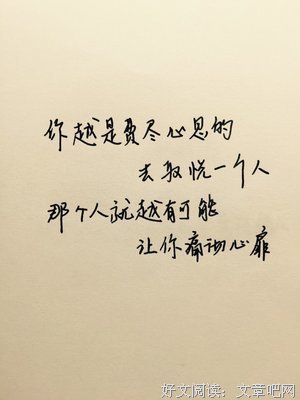 你越是费尽心思的
去取悦一个人
那个人就越有可能
让你痛彻心扉
好文阅读：文章吧网